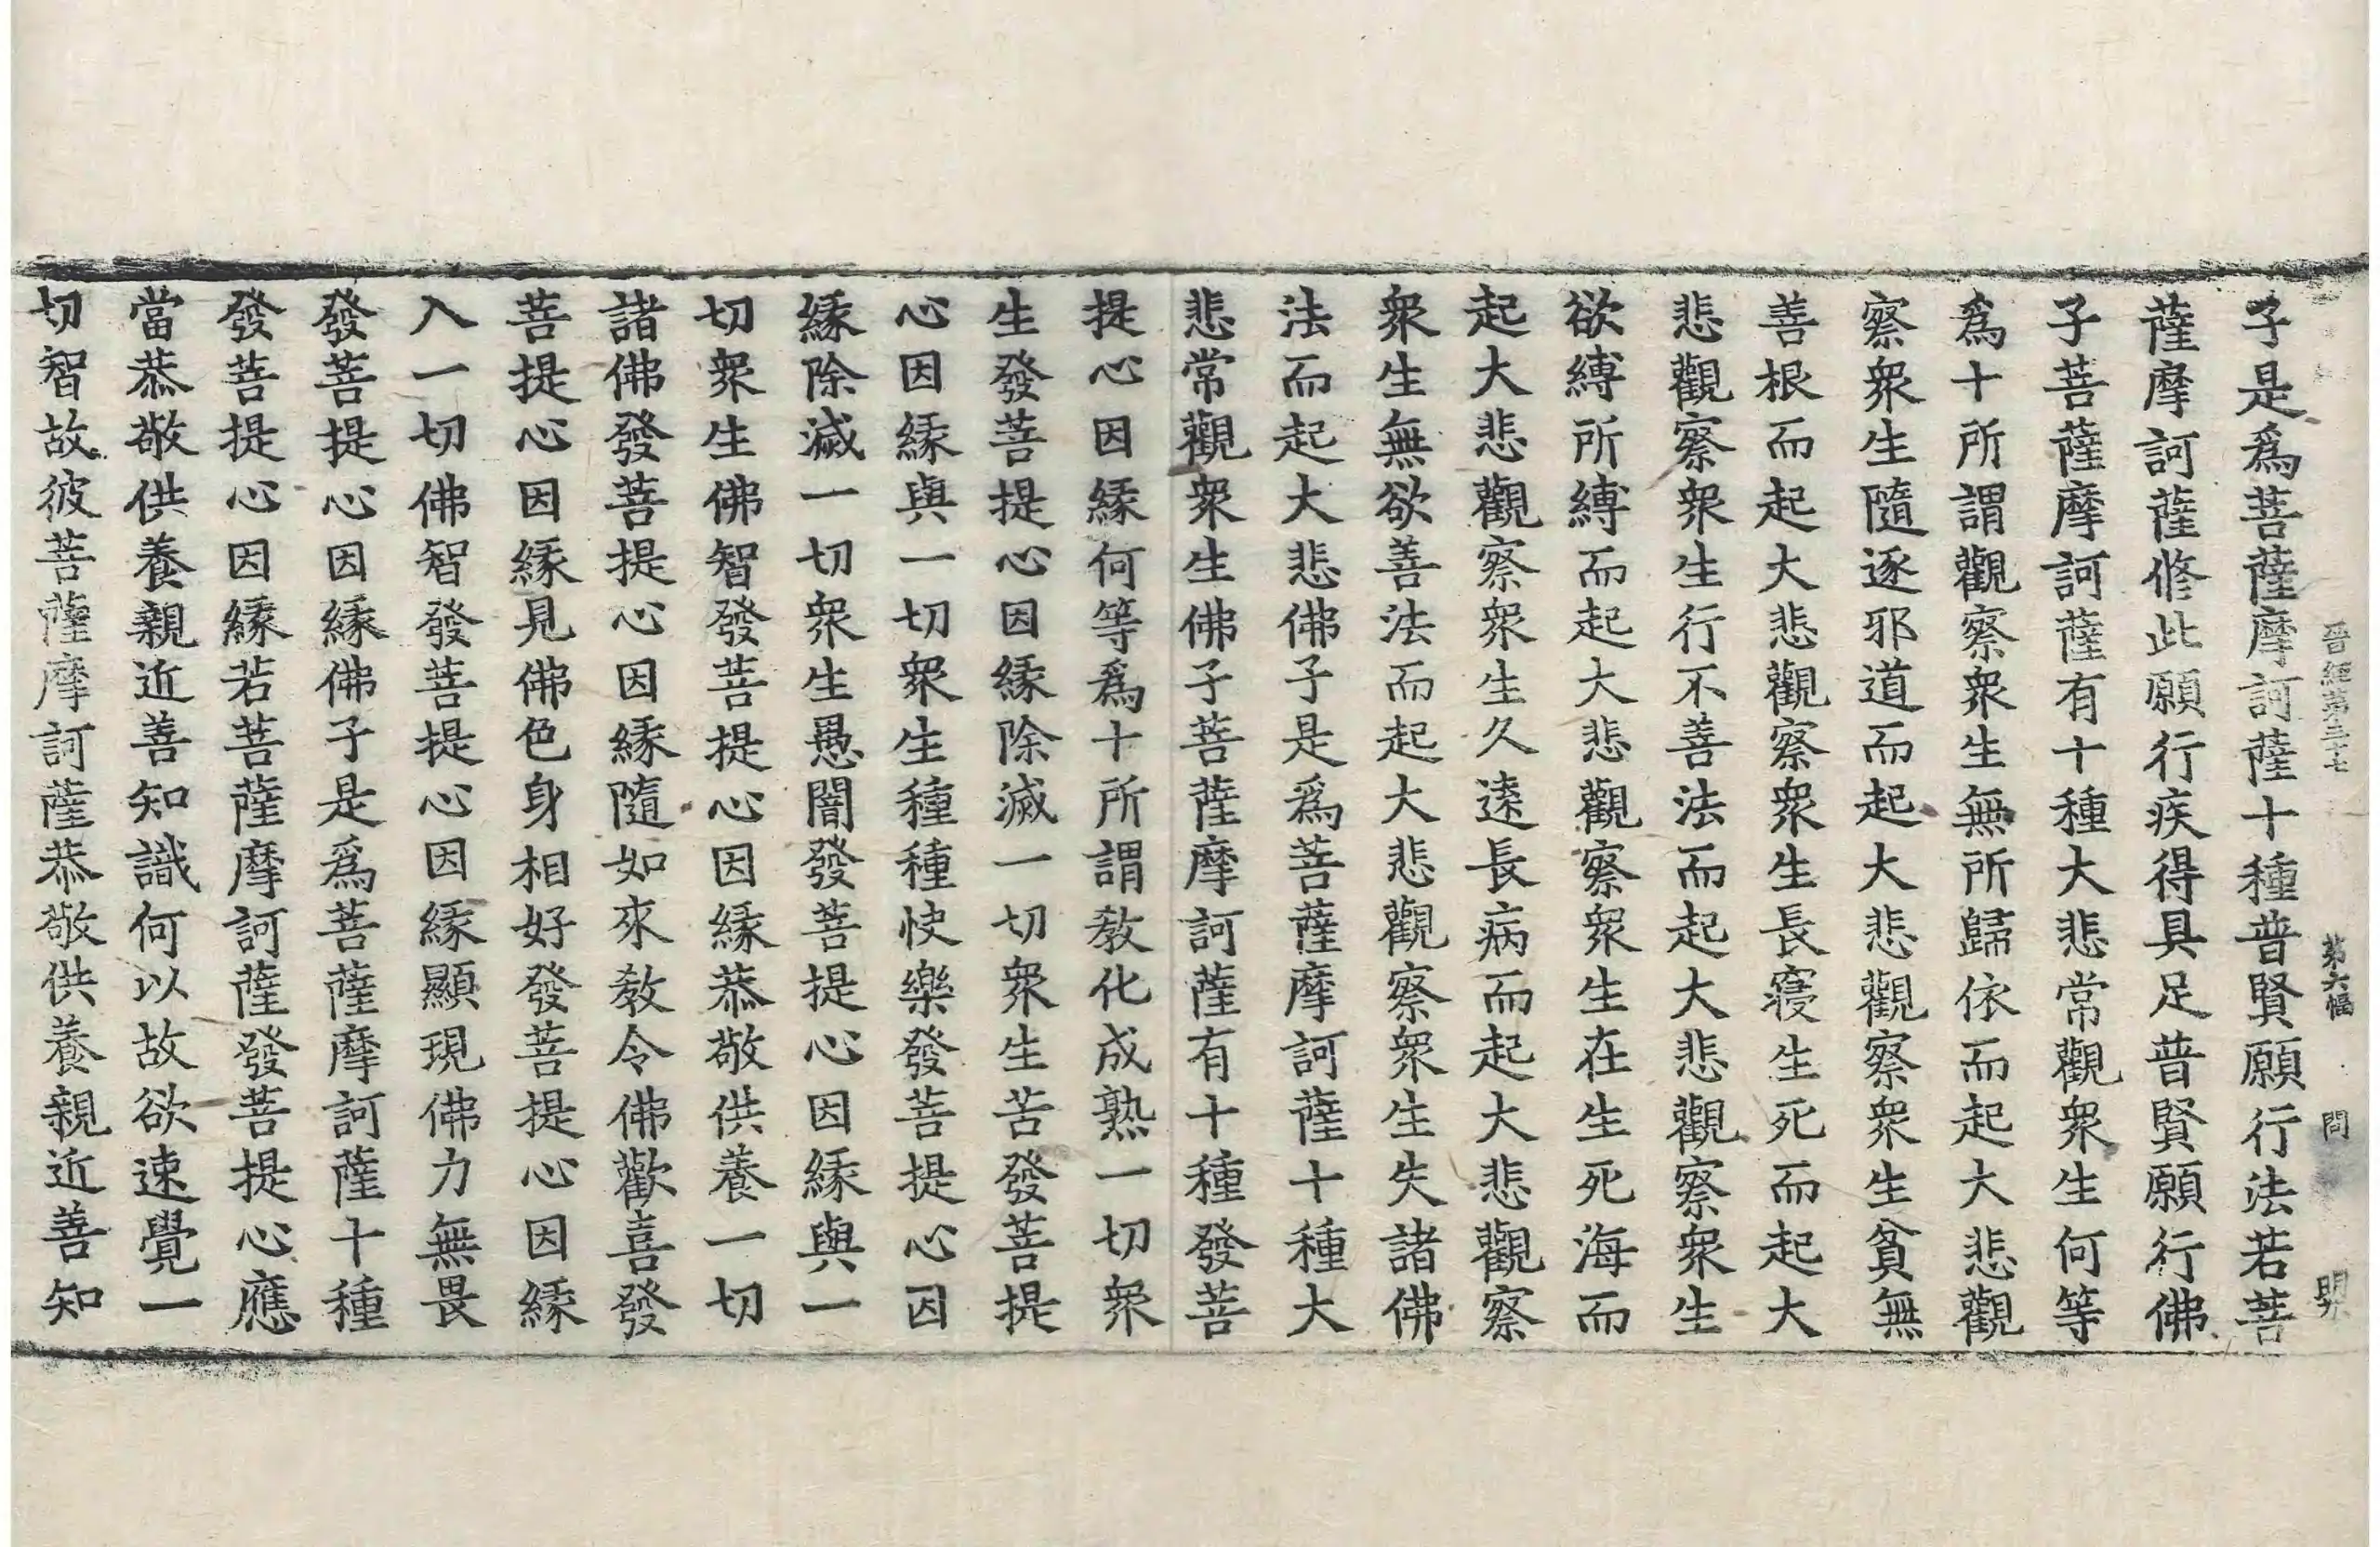 晉經第三十七 第六幅 問 明
子是爲菩薩摩訶薩十種普賢願行法若菩
薩摩訶薩修此願行疾得具足普賢願行佛
子菩薩摩訶薩有十種大悲常觀衆生何等
爲十所謂觀察衆生無所歸依而起大悲觀
察衆生隨逐邪道而起大悲觀察衆生貧無
善根而起大悲觀察衆生長寢生死而起大
悲觀察衆生行不善法而起大悲觀察衆生
欲縛所縛而起大悲觀察衆生在生死海而
起大悲觀察衆生久遠長病而起大悲觀察
衆生無欲善法而起大悲觀察衆生失諸佛
法而起大悲佛子是爲菩薩摩訶薩十種大
悲常觀衆生佛子菩薩摩訶薩有十種發菩
提心因緣何等爲十所謂教化成熟一切衆
生發菩提心因緣除滅一切衆生苦發菩提
心因緣與一切衆生種種快樂發菩提心因
緣除滅一切衆生愚闇發菩提心因緣與一
切衆生佛智發菩提心因緣恭敬供養一切
諸佛發菩提心因緣隨如來教令佛歡喜發
菩提心因緣見佛色身相好發菩提心因緣
入一切佛智發菩提心因緣顯現佛力無畏
發菩提心因緣佛子是爲菩薩摩訶薩十種
發菩提心因緣若菩薩摩訶薩發菩提心應
當恭敬供養親近善知識何以故欲速覺一
切智故彼菩薩摩訶薩恭敬供養親近善知